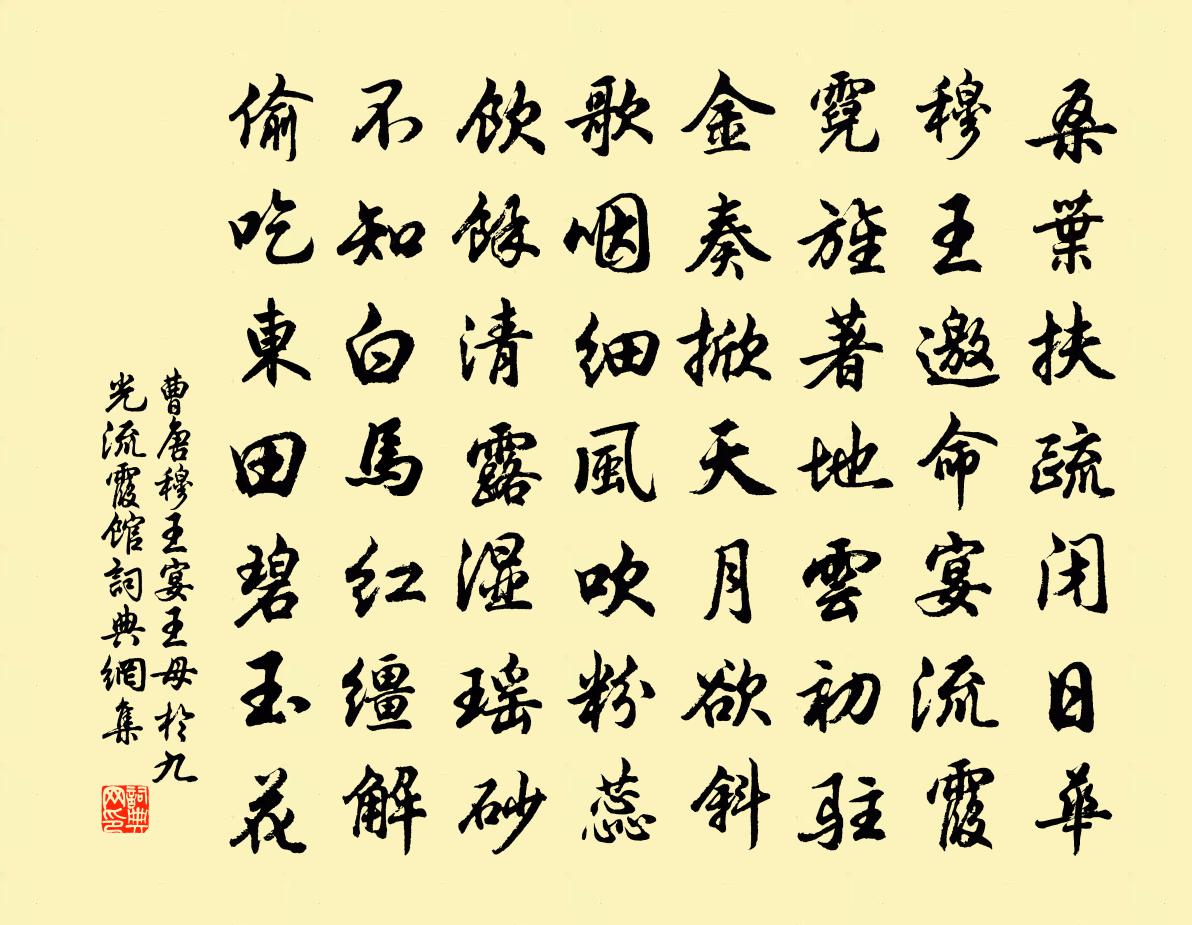 桑葉扶疏闭日華
穆王邀命宴流霞
霓旌著地雲初駐
金奏掀天月欲斜
歌咽细風吹粉蕊
飲餘清露湿瑶砂
不知白馬红缰解
偷吃東田碧玉花
曹唐穆王宴王母於九
光流霞馆詞典網集